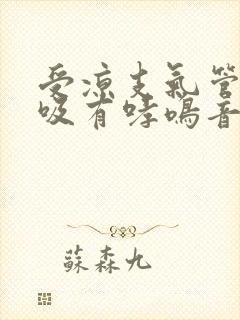 受凉支氣管
吸有哮鳴音
蘇森九